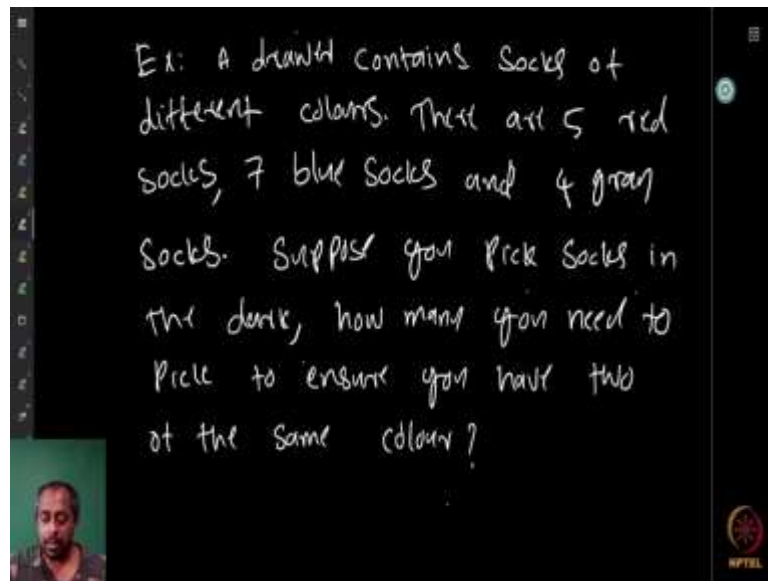 Ex: A drawer contains socks of
different colours. There are 5 red
socks, 7 blue socks and 4 gray
socks. Suppose you pick socks in
the dark, how many you need to
pick to ensure you have two
of the same colour?
NPTEL